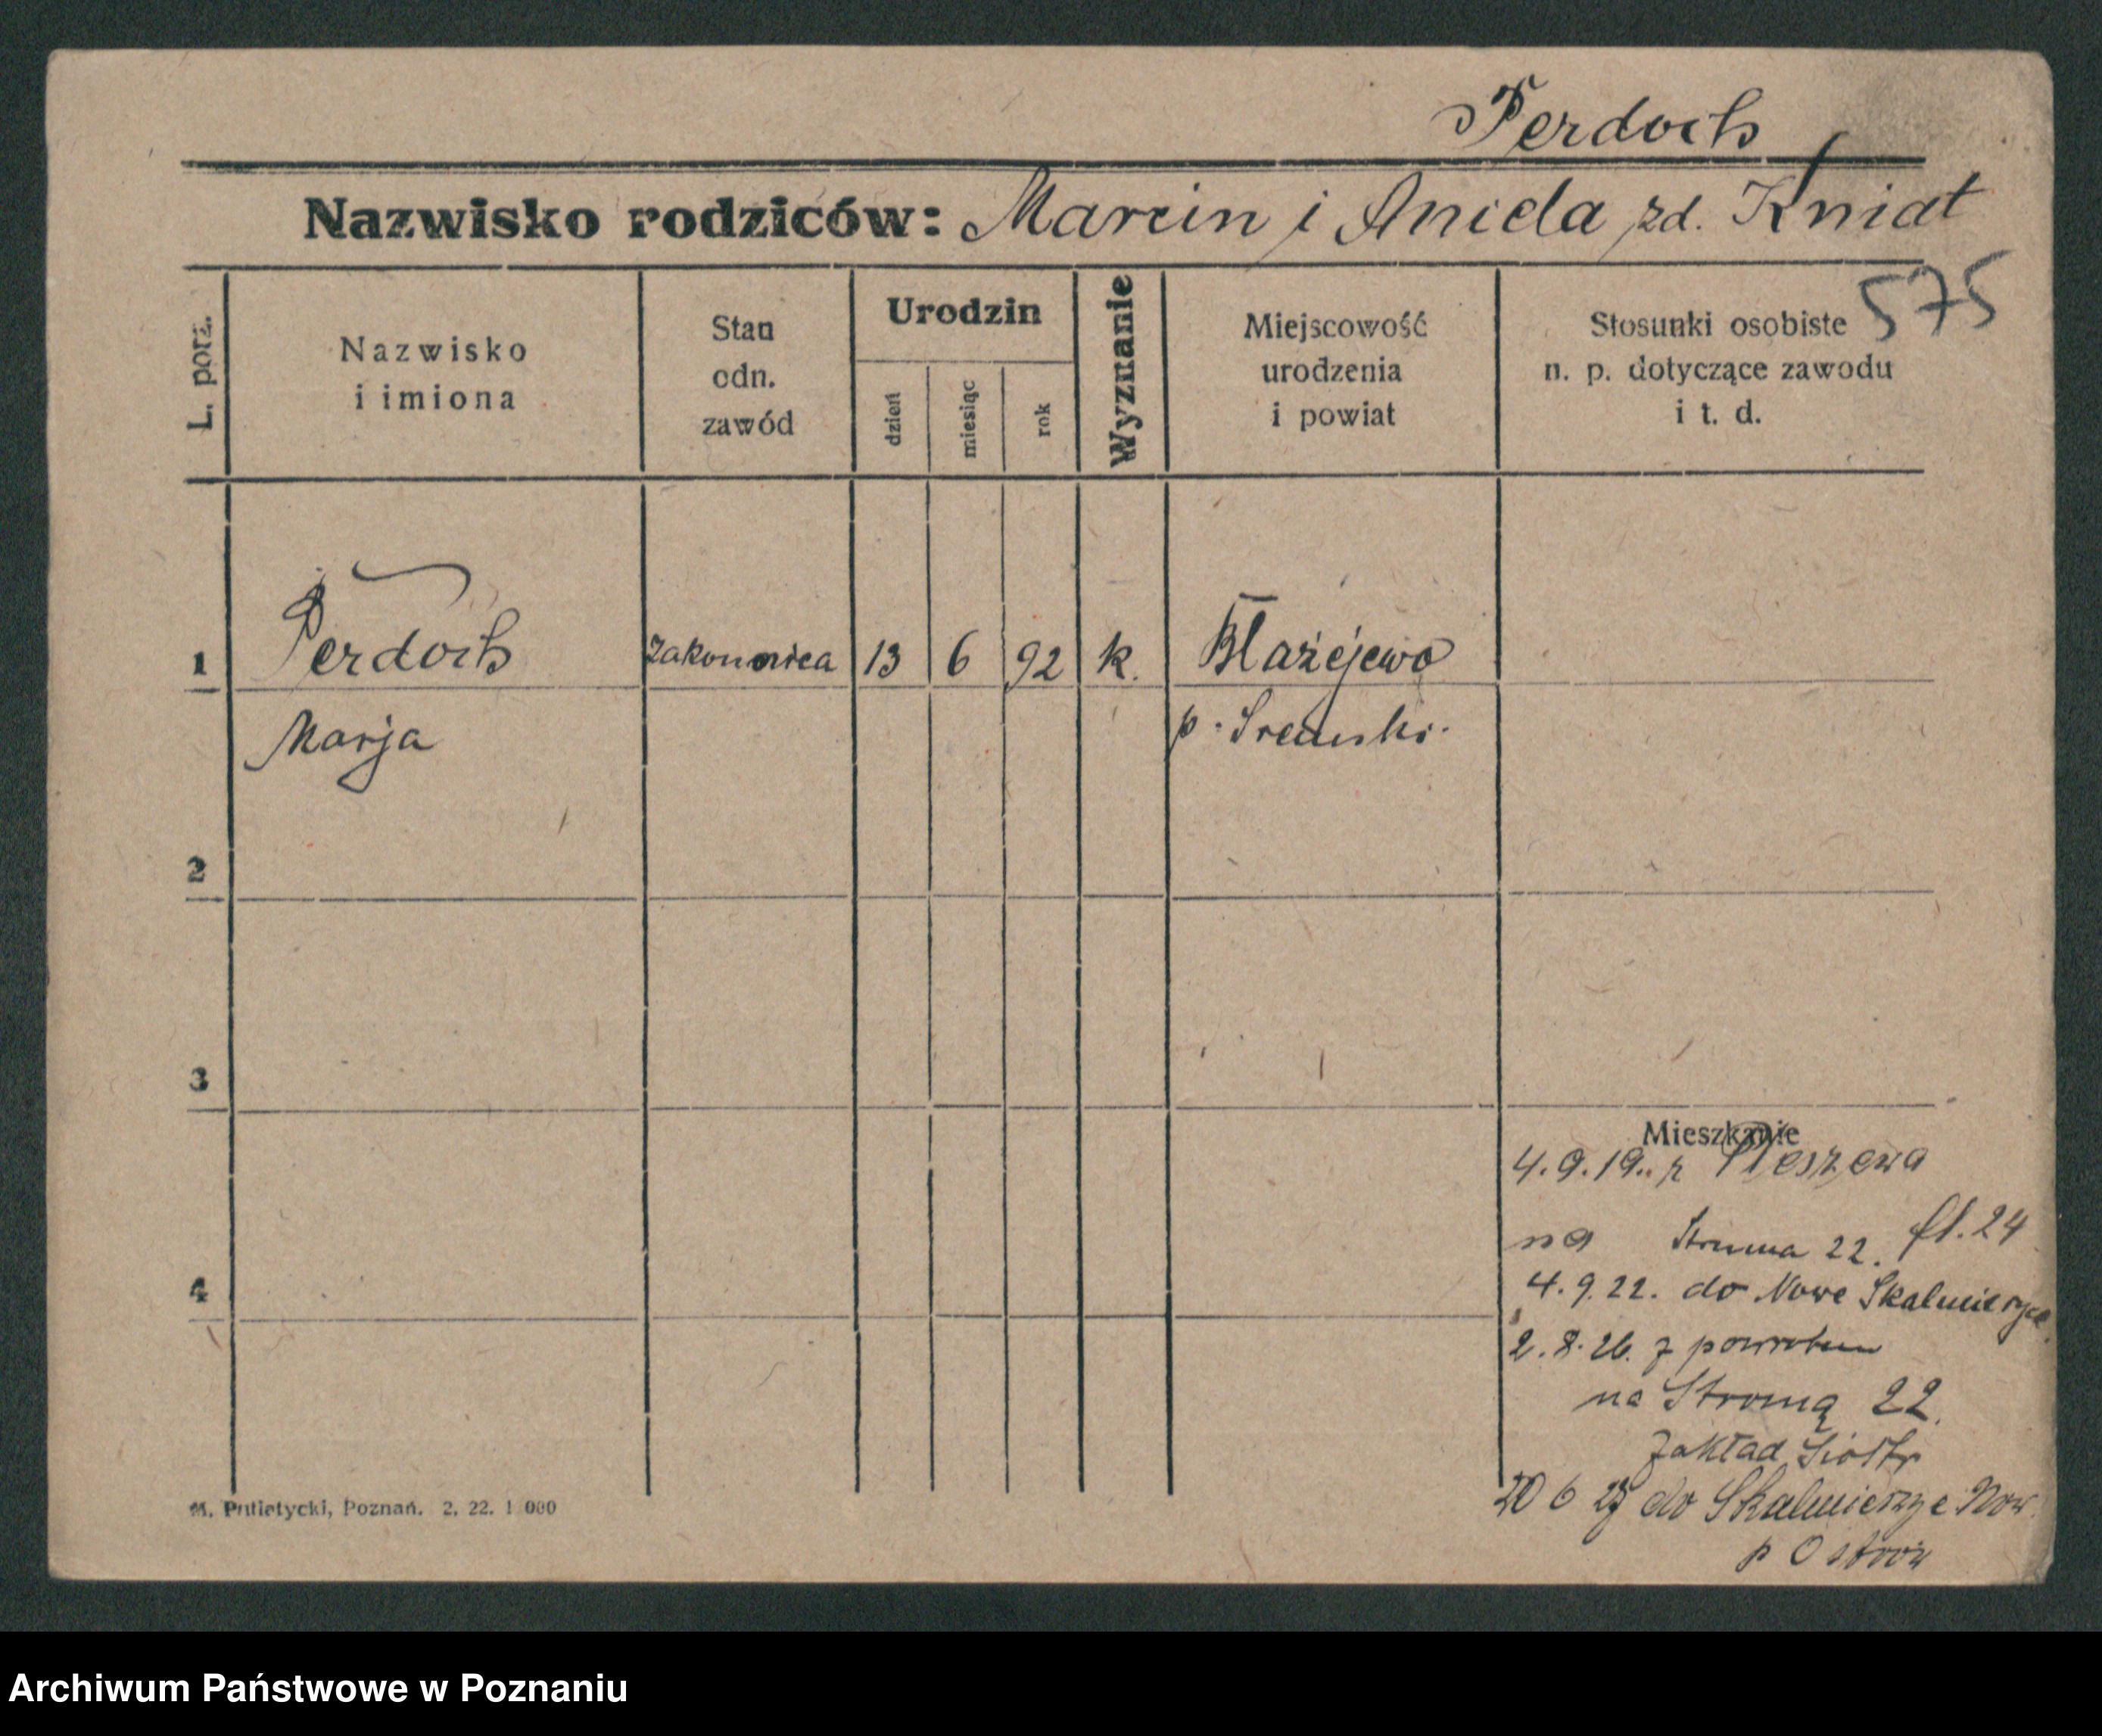 Perdoch
Nazwisko rodziców: Marcin i Aniela zd. Kniat
575
L. porz.
Nazwisko
i imiona
Stan
odn.
zawód
Urodzin
dzień
miesiąc
rok
Wyznanie
Miejscowość
urodzenia
i powiat
Stosunki osobiste
n. p. dotyczące zawodu
i t. d.
1 Perdoch zakonnica 13 6 92 k. Błażejewo
Marja p. Śremski.
2
3
Mieszkanie
4.9.19. z Pleszewa
na Stroma 22. fl. 24
4
4.9.22. do Nowe Skalmierzyce
2.8.26. z powrotem
na Stromą 22.
Zakład Siostr
20 6 27 do Skalmierzyce Now.
p Ostrów
M. Putiatycki, Poznań. 2. 22. 1 000
Archiwum Państwowe w Poznaniu